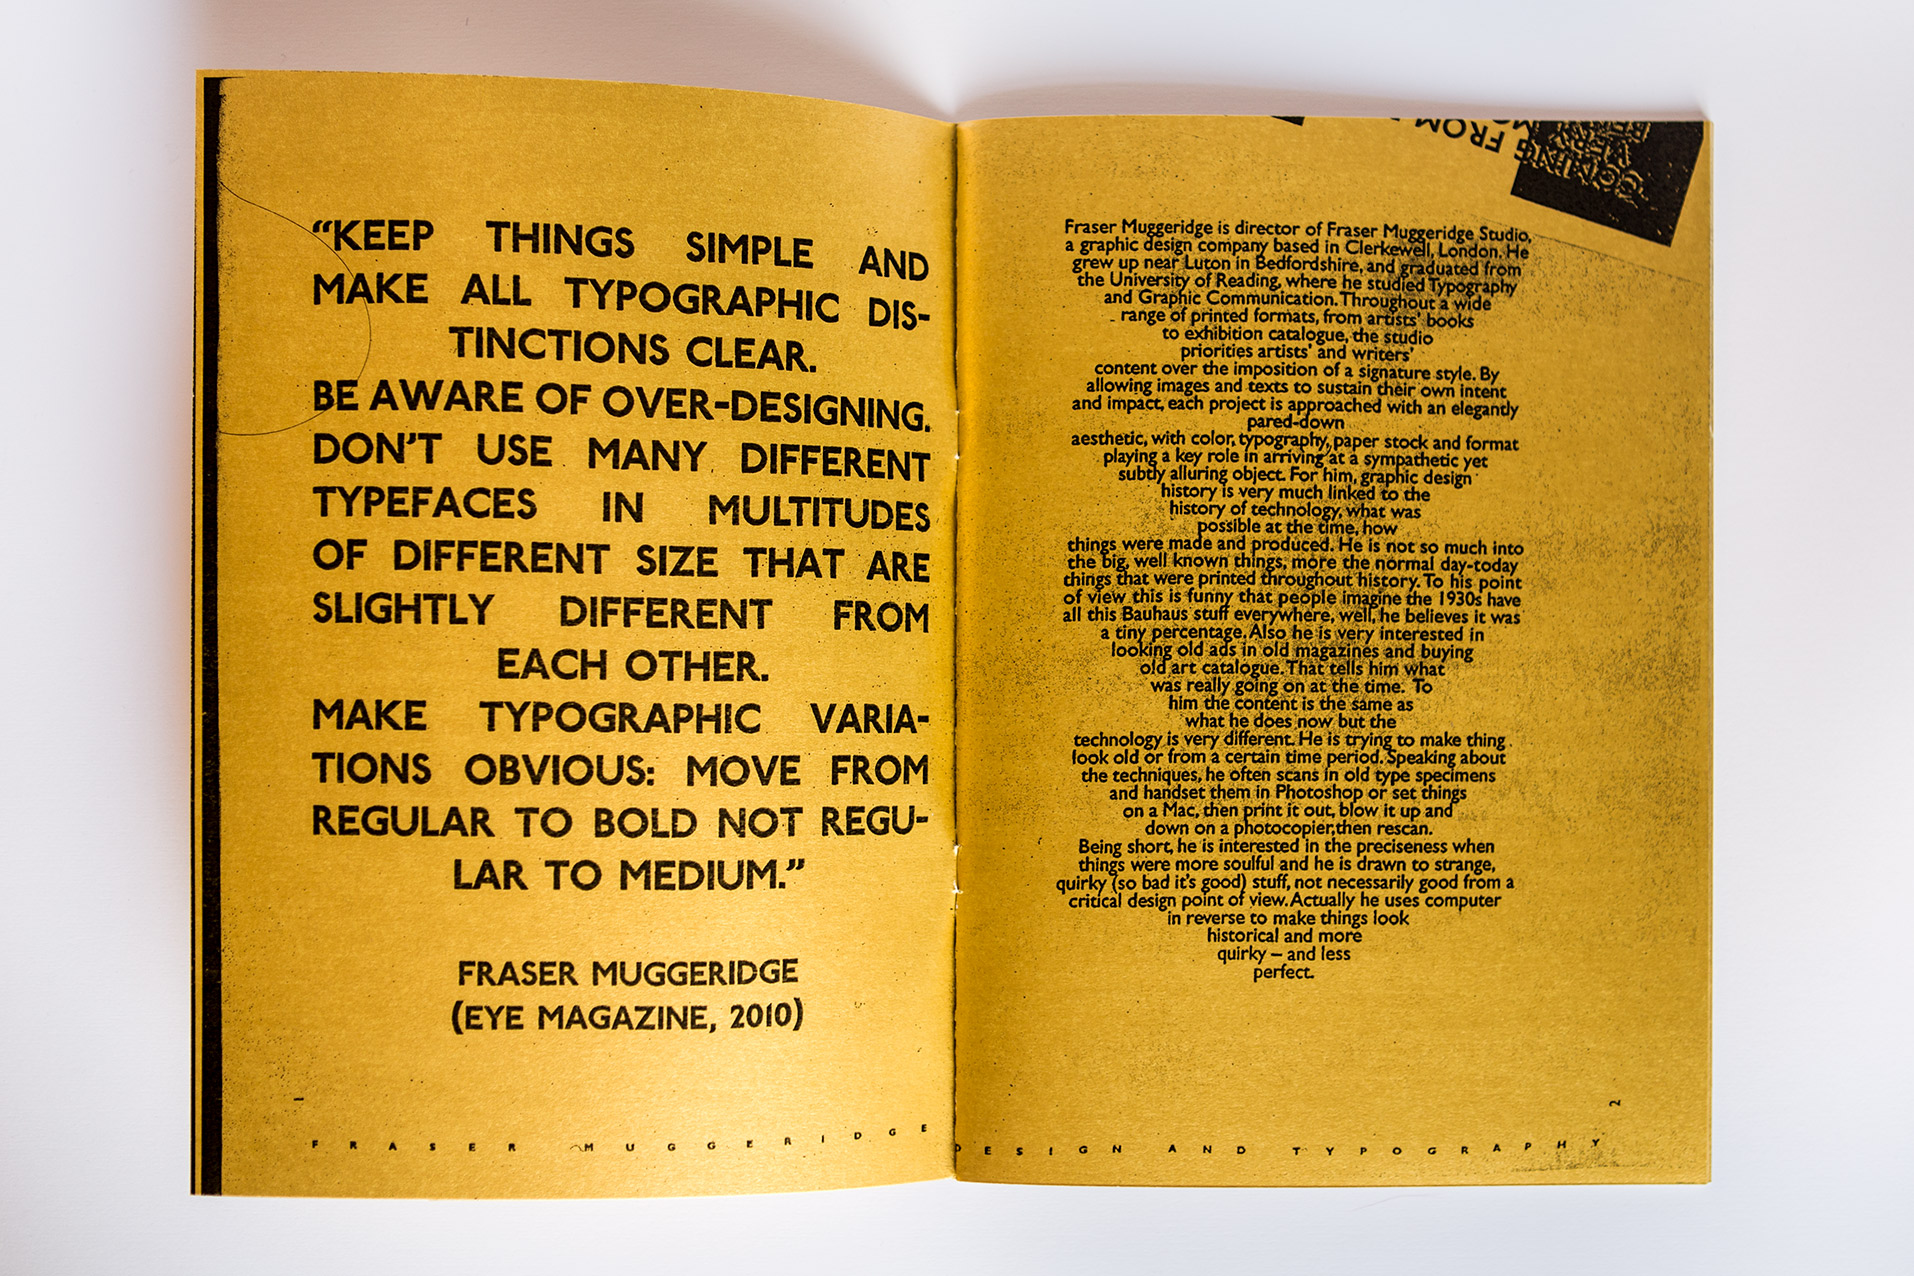 “KEEP THINGS SIMPLE AND
MAKE ALL TYPOGRAPHIC DIS-
TINCTIONS CLEAR.
BE AWARE OF OVER-DESIGNING.
DON’T USE MANY DIFFERENT
TYPEFACES IN MULTITUDES
OF DIFFERENT SIZE THAT ARE
SLIGHTLY DIFFERENT FROM
EACH OTHER.
MAKE TYPOGRAPHIC VARIA-
TIONS OBVIOUS: MOVE FROM
REGULAR TO BOLD NOT REGU-
LAR TO MEDIUM.”
FRASER MUGGERIDGE
(EYE MAGAZINE, 2010)
1
FRASER MUGGERIDGE
FROM
COMING
VERY
Fraser Muggeridge is director of Fraser Muggeridge Studio,
a graphic design company based in Clerkewell, London. He
grew up near Luton in Bedfordshire, and graduated from
the University of Reading, where he studied Typography
and Graphic Communication. Throughout a wide
range of printed formats, from artists’ books
to exhibition catalogue, the studio
priorities artists’ and writers’
content over the imposition of a signature style. By
allowing images and texts to sustain their own intent
and impact, each project is approached with an elegantly
pared-down
aesthetic, with color, typography, paper stock and format
playing a key role in arriving at a sympathetic yet
subtly alluring object. For him, graphic design
history is very much linked to the
history of technology, what was
possible at the time, how
things were made and produced. He is not so much into
the big, well known things, more the normal day-today
things that were printed throughout history. To his point
of view this is funny that people imagine the 1930s have
all this Bauhaus stuff everywhere, well, he believes it was
a tiny percentage. Also he is very interested in
looking old ads in old magazines and buying
old art catalogue. That tells him what
was really going on at the time. To
him the content is the same as
what he does now but the
technology is very different. He is trying to make thing
look old or from a certain time period. Speaking about
the techniques, he often scans in old type specimens
and handset them in Photoshop or set things
on a Mac, then print it out, blow it up and
down on a photocopier,then rescan.
Being short, he is interested in the preciseness when
things were more soulful and he is drawn to strange,
quirky (so bad it’s good) stuff, not necessarily good from a
critical design point of view. Actually he uses computer
in reverse to make things look
historical and more
quirky – and less
perfect.
2
DESIGN AND TYPOGRAPHY